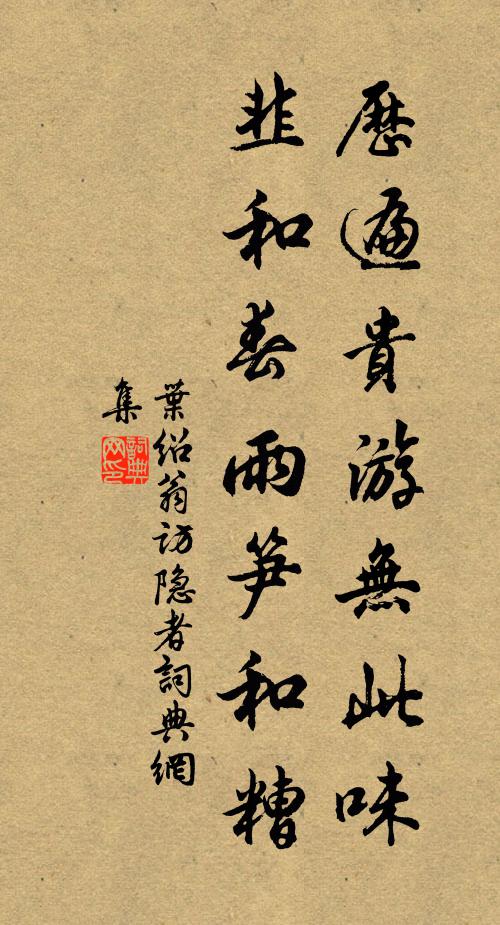 歷遍貴游無此味
韭和春雨笋和糟
葉紹翁訪隐者詞典網
集
詞典网印